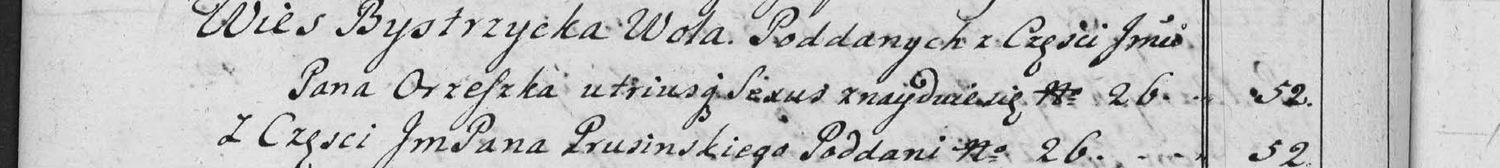 Wies Bystrzycka Wola. Poddanych z Częsci Jmci
Pana Orzeszka utriusq Sexus znayduie się No 26. - 52.
Z Częsci Jm Pana Prusinskiego Poddani No 26. - - - 52.